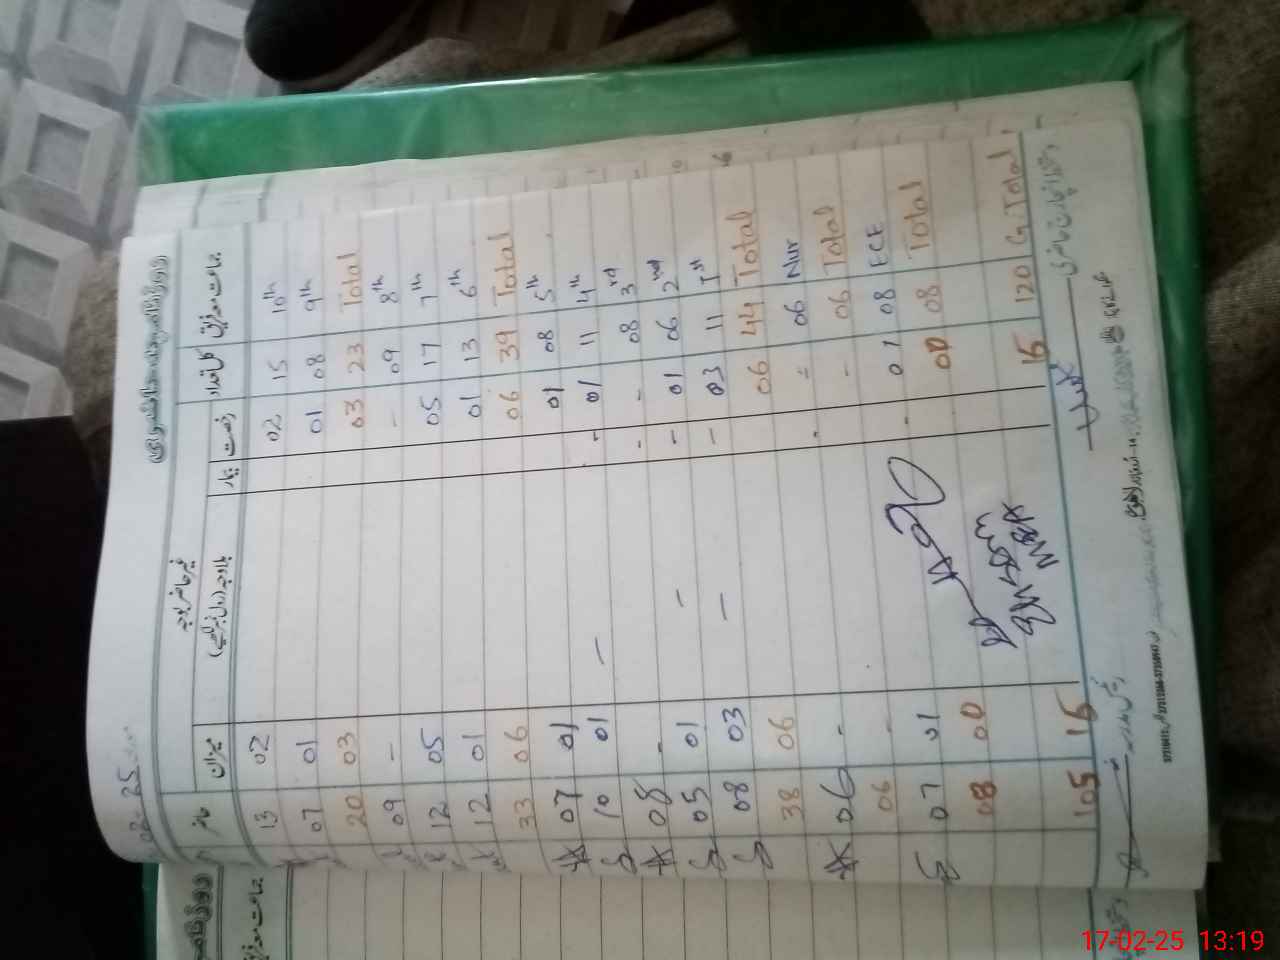 روزنامچہ حاضری
08-25
جماعت معہ فریق کل تعداد غیر حاضر بوجہ میزان حاضر
رخصت بیمار بلاوجہ (رول نمبر لکھیے)
10th 15 02 02 13
9th 08 01 01 07
Total 23 03 03 20
8th 09 - - 09
7th 17 05 05 12
6th 13 01 01 12
Total 39 06 06 33
5th 08 01 01 07
4th 11 01 - - 01 10
3rd 08 - - - 08
2nd 06 01 - - 01 05
1st 11 03 - - 03 08
Total 44 06 06 38
Nur 06 = - - 06
Total 06 - - 06
ECE 08 01 - 01 07
Total 08 00 00 08
G.Total 120 15 15 105
MEA
17-02-25 13:19